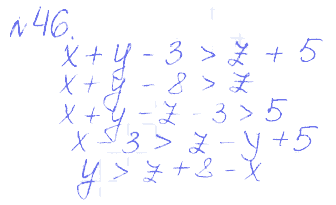 №46.
x + y - 3 > z + 5
x + y - 8 > z
x + y - z - 3 > 5
x - 3 > z - y + 5
y > z + 8 - x